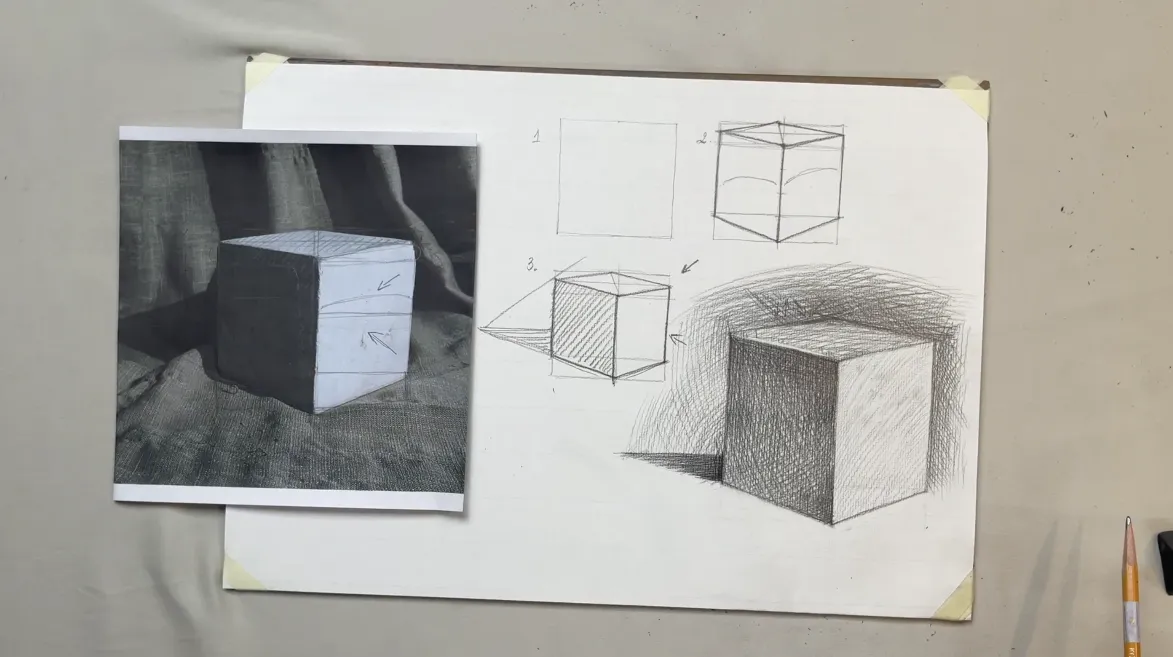 1
2
3.